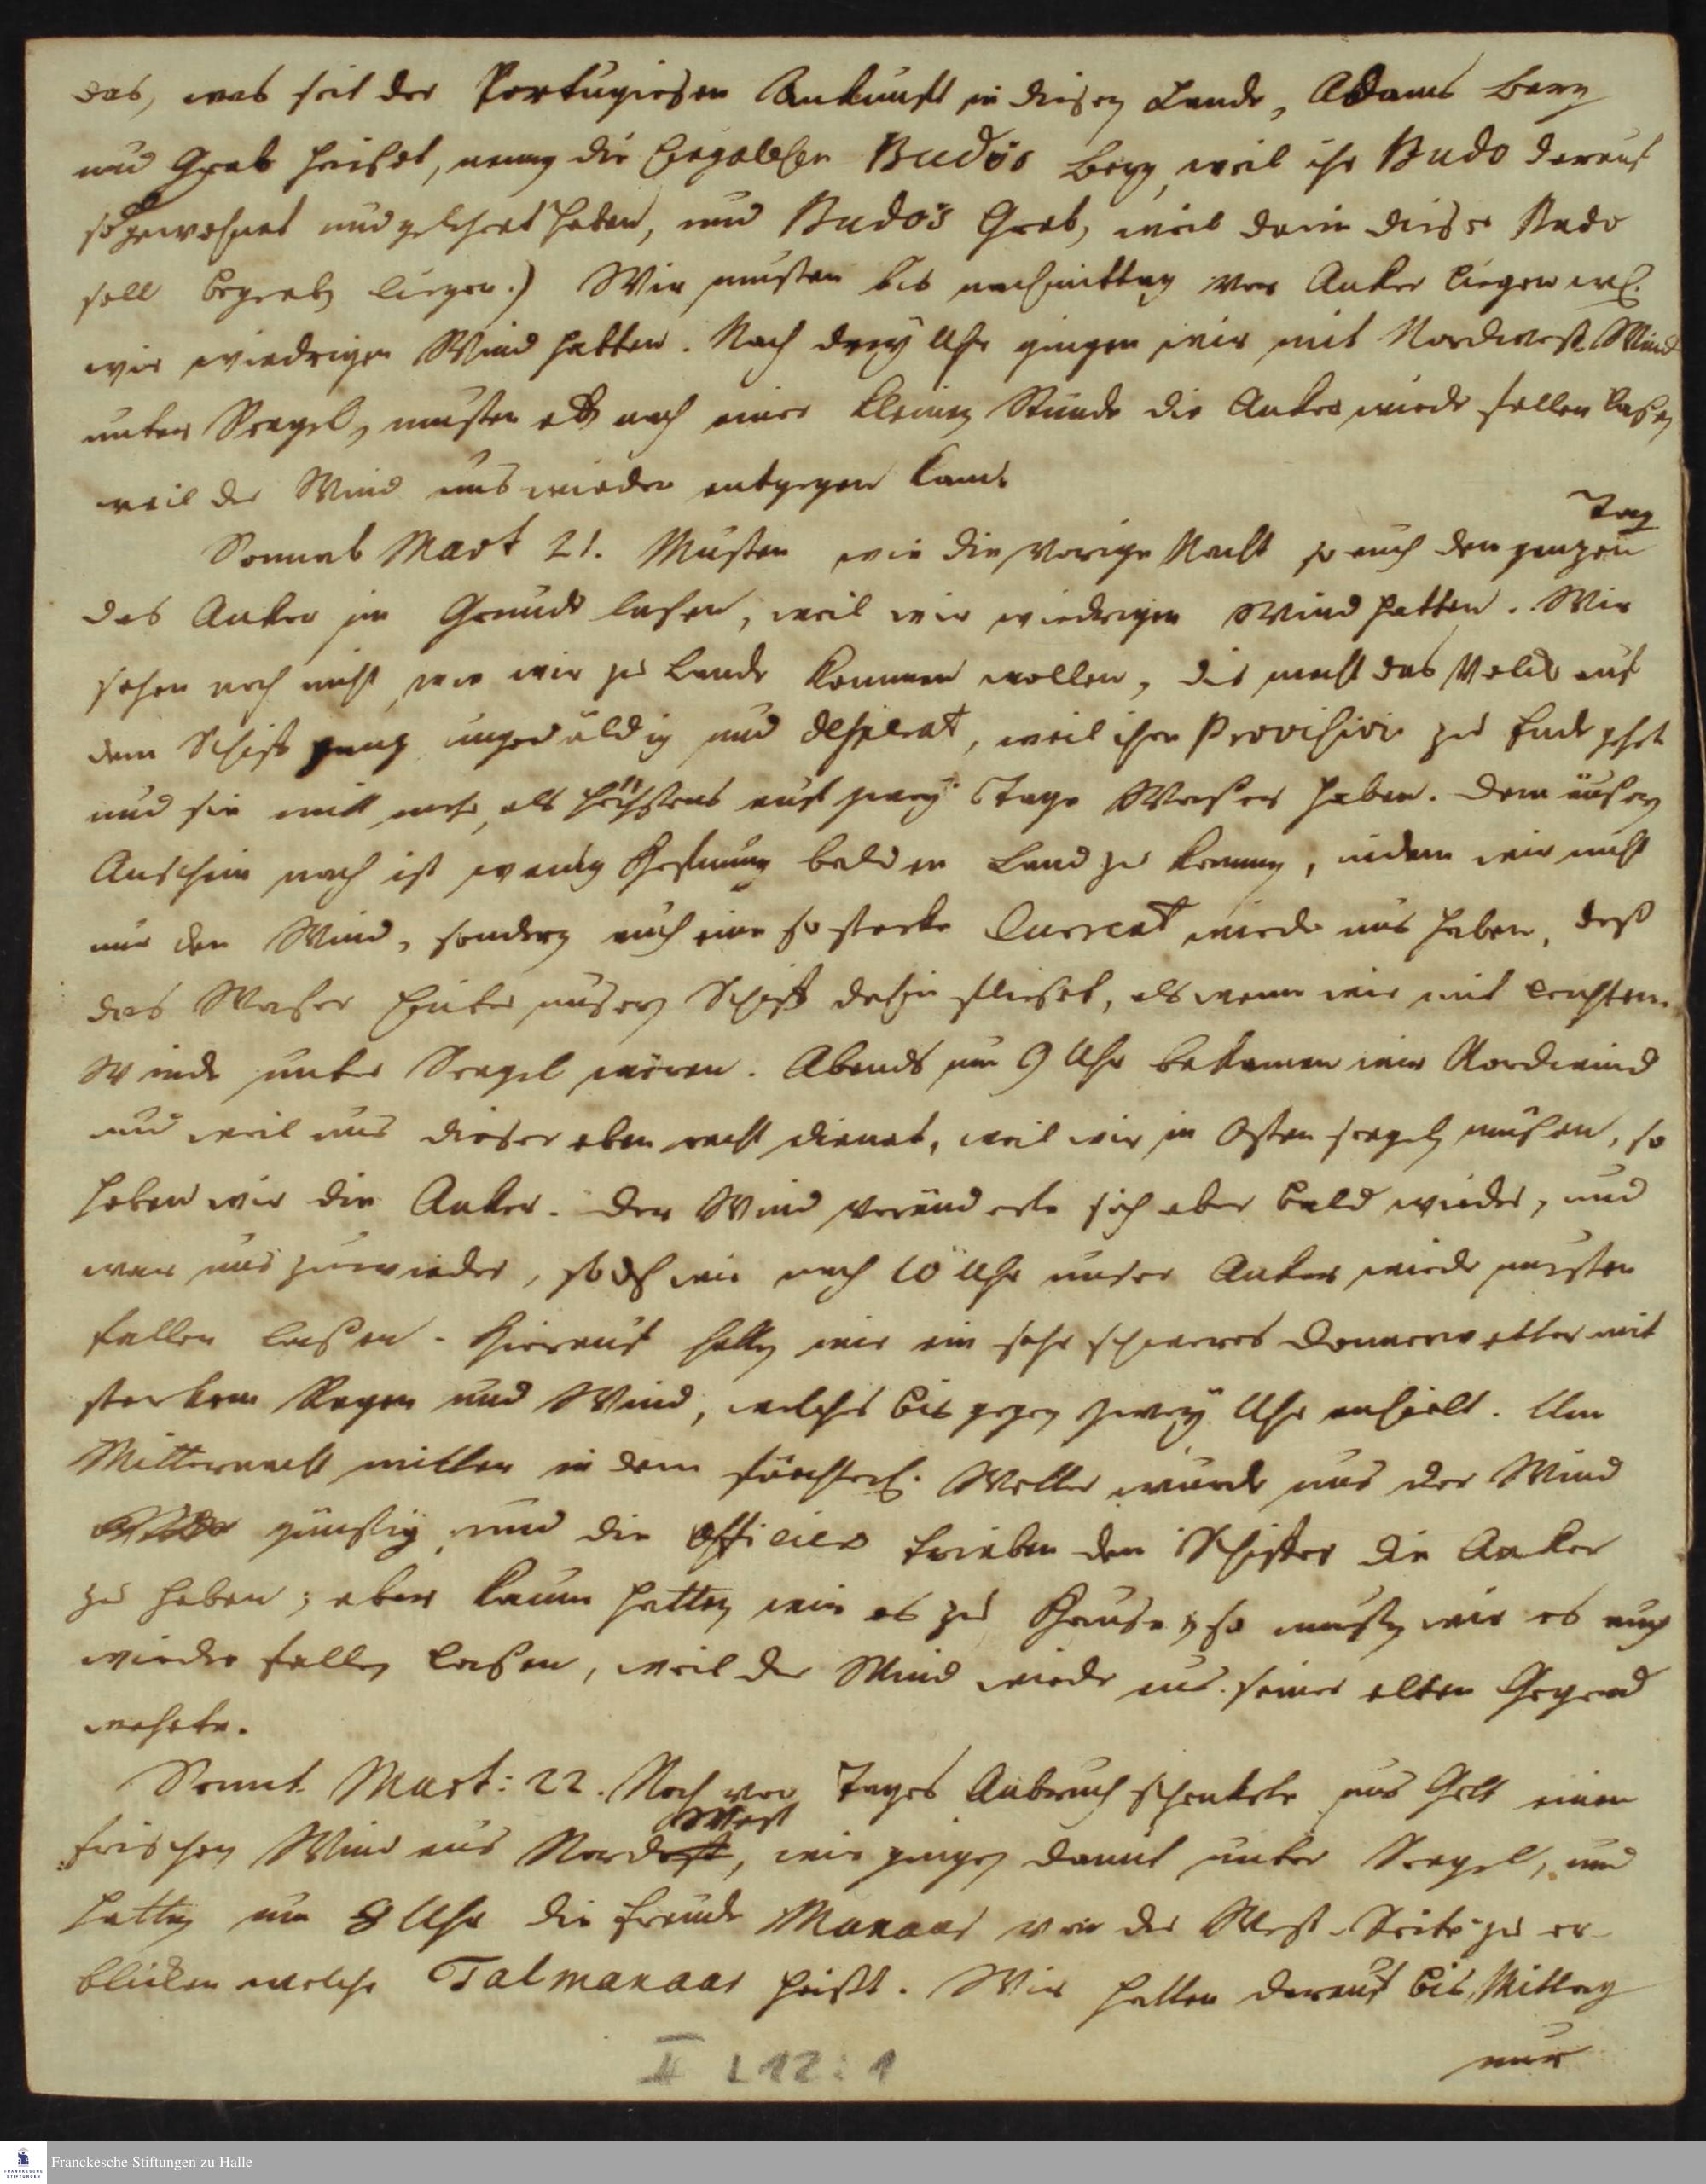 das, was seit der Portugiesen Ankunft in diesen Lande, Adams Berg
und Grab heiset, nenen die Cingalesen Budös Berg, weil ihr Budo darauf
so gewohnet und gelehret haben, und Budo's Grab, weil darin dieser Budo
soll begraben liegen.) Wir musten bis nachmittag vor Anker liegen weil
wir wiedrigen Wind hatten. Nach drey Uhr gingen wir mit Nordwest-Wind
unter Seegel, musten aber nach einer kleinen Stunde die Anker wieder fallen laßen
weil der Wind uns wieder entgegen kam.
Sonnab Mart 21. Musten wir die vorige Nacht so auch den ganzen Tag
das Anker im Grunde laßen, weil wir wiedrigen Wind hatten. Wir
sehen noch nicht, wie wir zu Lande kommen wollen, dis macht das Volck auf
dem Schiff ganz ungedüldig und desperat, weil ihre Provision zu Ende gehet
und sie nicht mehr, als höchstens auf zwey Tage Waßer haben. Dem äußern
Anschein nach ist wenig Hoffnung bald an Land zu kommen, indem wir nicht
nur den Wind, sondern auch eine so starke Current wieder uns haben, daß
das Waßer hinter unsern Schiff dahin fließet, als wenn wir mit leichten
Winde unter Seegel wären. Abends um 9 Uhr bekamen wir Nordwind
und weil uns dieser eben recht dienet, weil wir in Osten seegeln müßen, so
hoben wir die Anker. Der Wind veränderte sich aber bald wieder, und
war uns zuwieder, so daß wir nach 10 Uhr unser Anker wieder musten
fallen laßen. Hierauf hatten wir ein sehr schweres Donnerwetter mit
starkem Regen und Wind, welches bis gegen zwey Uhr anhielt. Um
Mitternacht mitten in dem fürchterl. Wetter wurde uns der Wind
günstig, und die Officier trieben den Schiffer die Anker
zu heben; aber kaum hatten wir es zu Hause, so musten wir es auch
wieder fallen laßen, weil der Wind wieder aus seiner alten Gegend
wehete.
Sonnt. Mart: 22. Noch vor Tages Anbruch schenkete uns Gott einen
frischen Wind aus Nordost West, wir gingen damit unter Seegel, und
hatten um 8 Uhr die Freude Manaar von der West-Seite zu er-
blicken welche Talmanaar heißt. Wir hatten darauf bis Mittag
nur
II L 12 : 1
Franckesche Stiftungen zu Halle